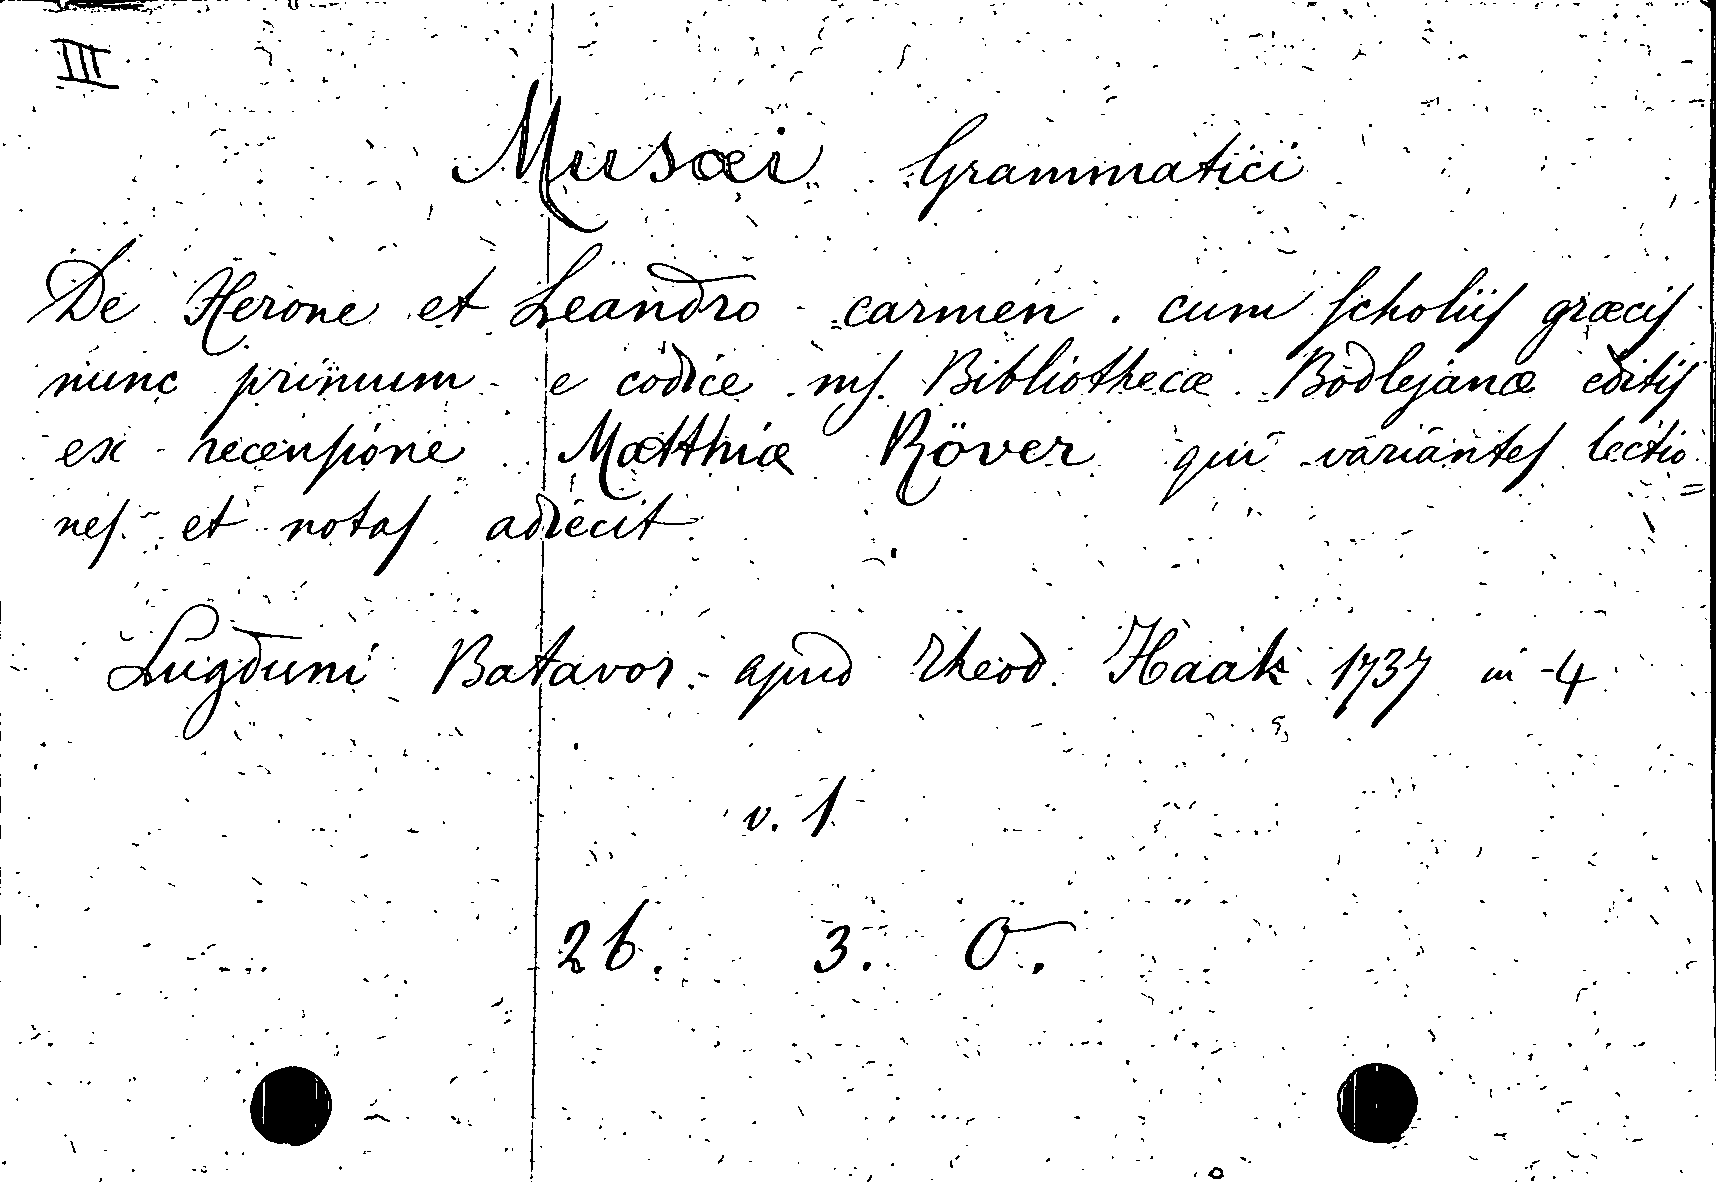 III
Musæi Grammatici
De Herone et Leandro carmen. cum scholiis græcis
nunc primum e codice ms. Bibliothecæ Bodlejanæ editis
ex recensione Matthiæ Röver qui variantes lectio=
nes et notas adiecit
Lugduni Batavor. apud Theod. Haak 1737 in-4
v. 1
26. 3. O.